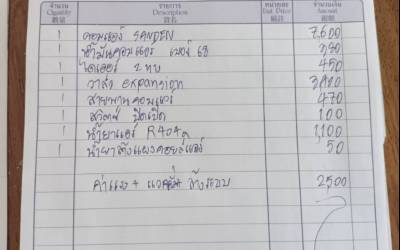 จำนวน รายการ หมายเหตุ จำนวนเงิน
Quantity Description Unit Price Amount
數量 貨名 備註 銀額
1 คอมแอร์ SANDEN 7,600
1 น้ำมันคอมแอร์ เบอร์ 68
1 ไดเออร์ 2 หุน 450
1 วาล์ว expansion
1 สายพานคอมแอร์ 470
1 สวิตซ์ ปิดเปิด 100
1 น้ำยาแอร์ 1,100
1 น้ำยาล้างแผงคอยล์แอร์ 50
ค่าแรง + แวคคั่ม ล้างระบบ 2500